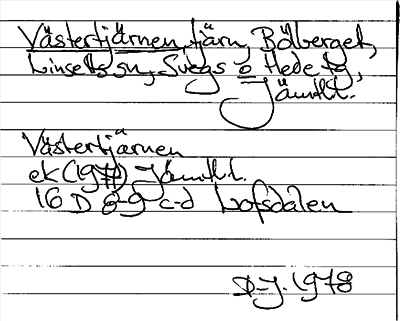 Västertjärnen, tjärn, Bölberget,
Linsells sn, Svegs o Hede tg,
Jämtl.
Västertjärnen
ek (1971) Jämtl.l.
16 D 8-9 c-d Lofsdalen
D-J. 1978